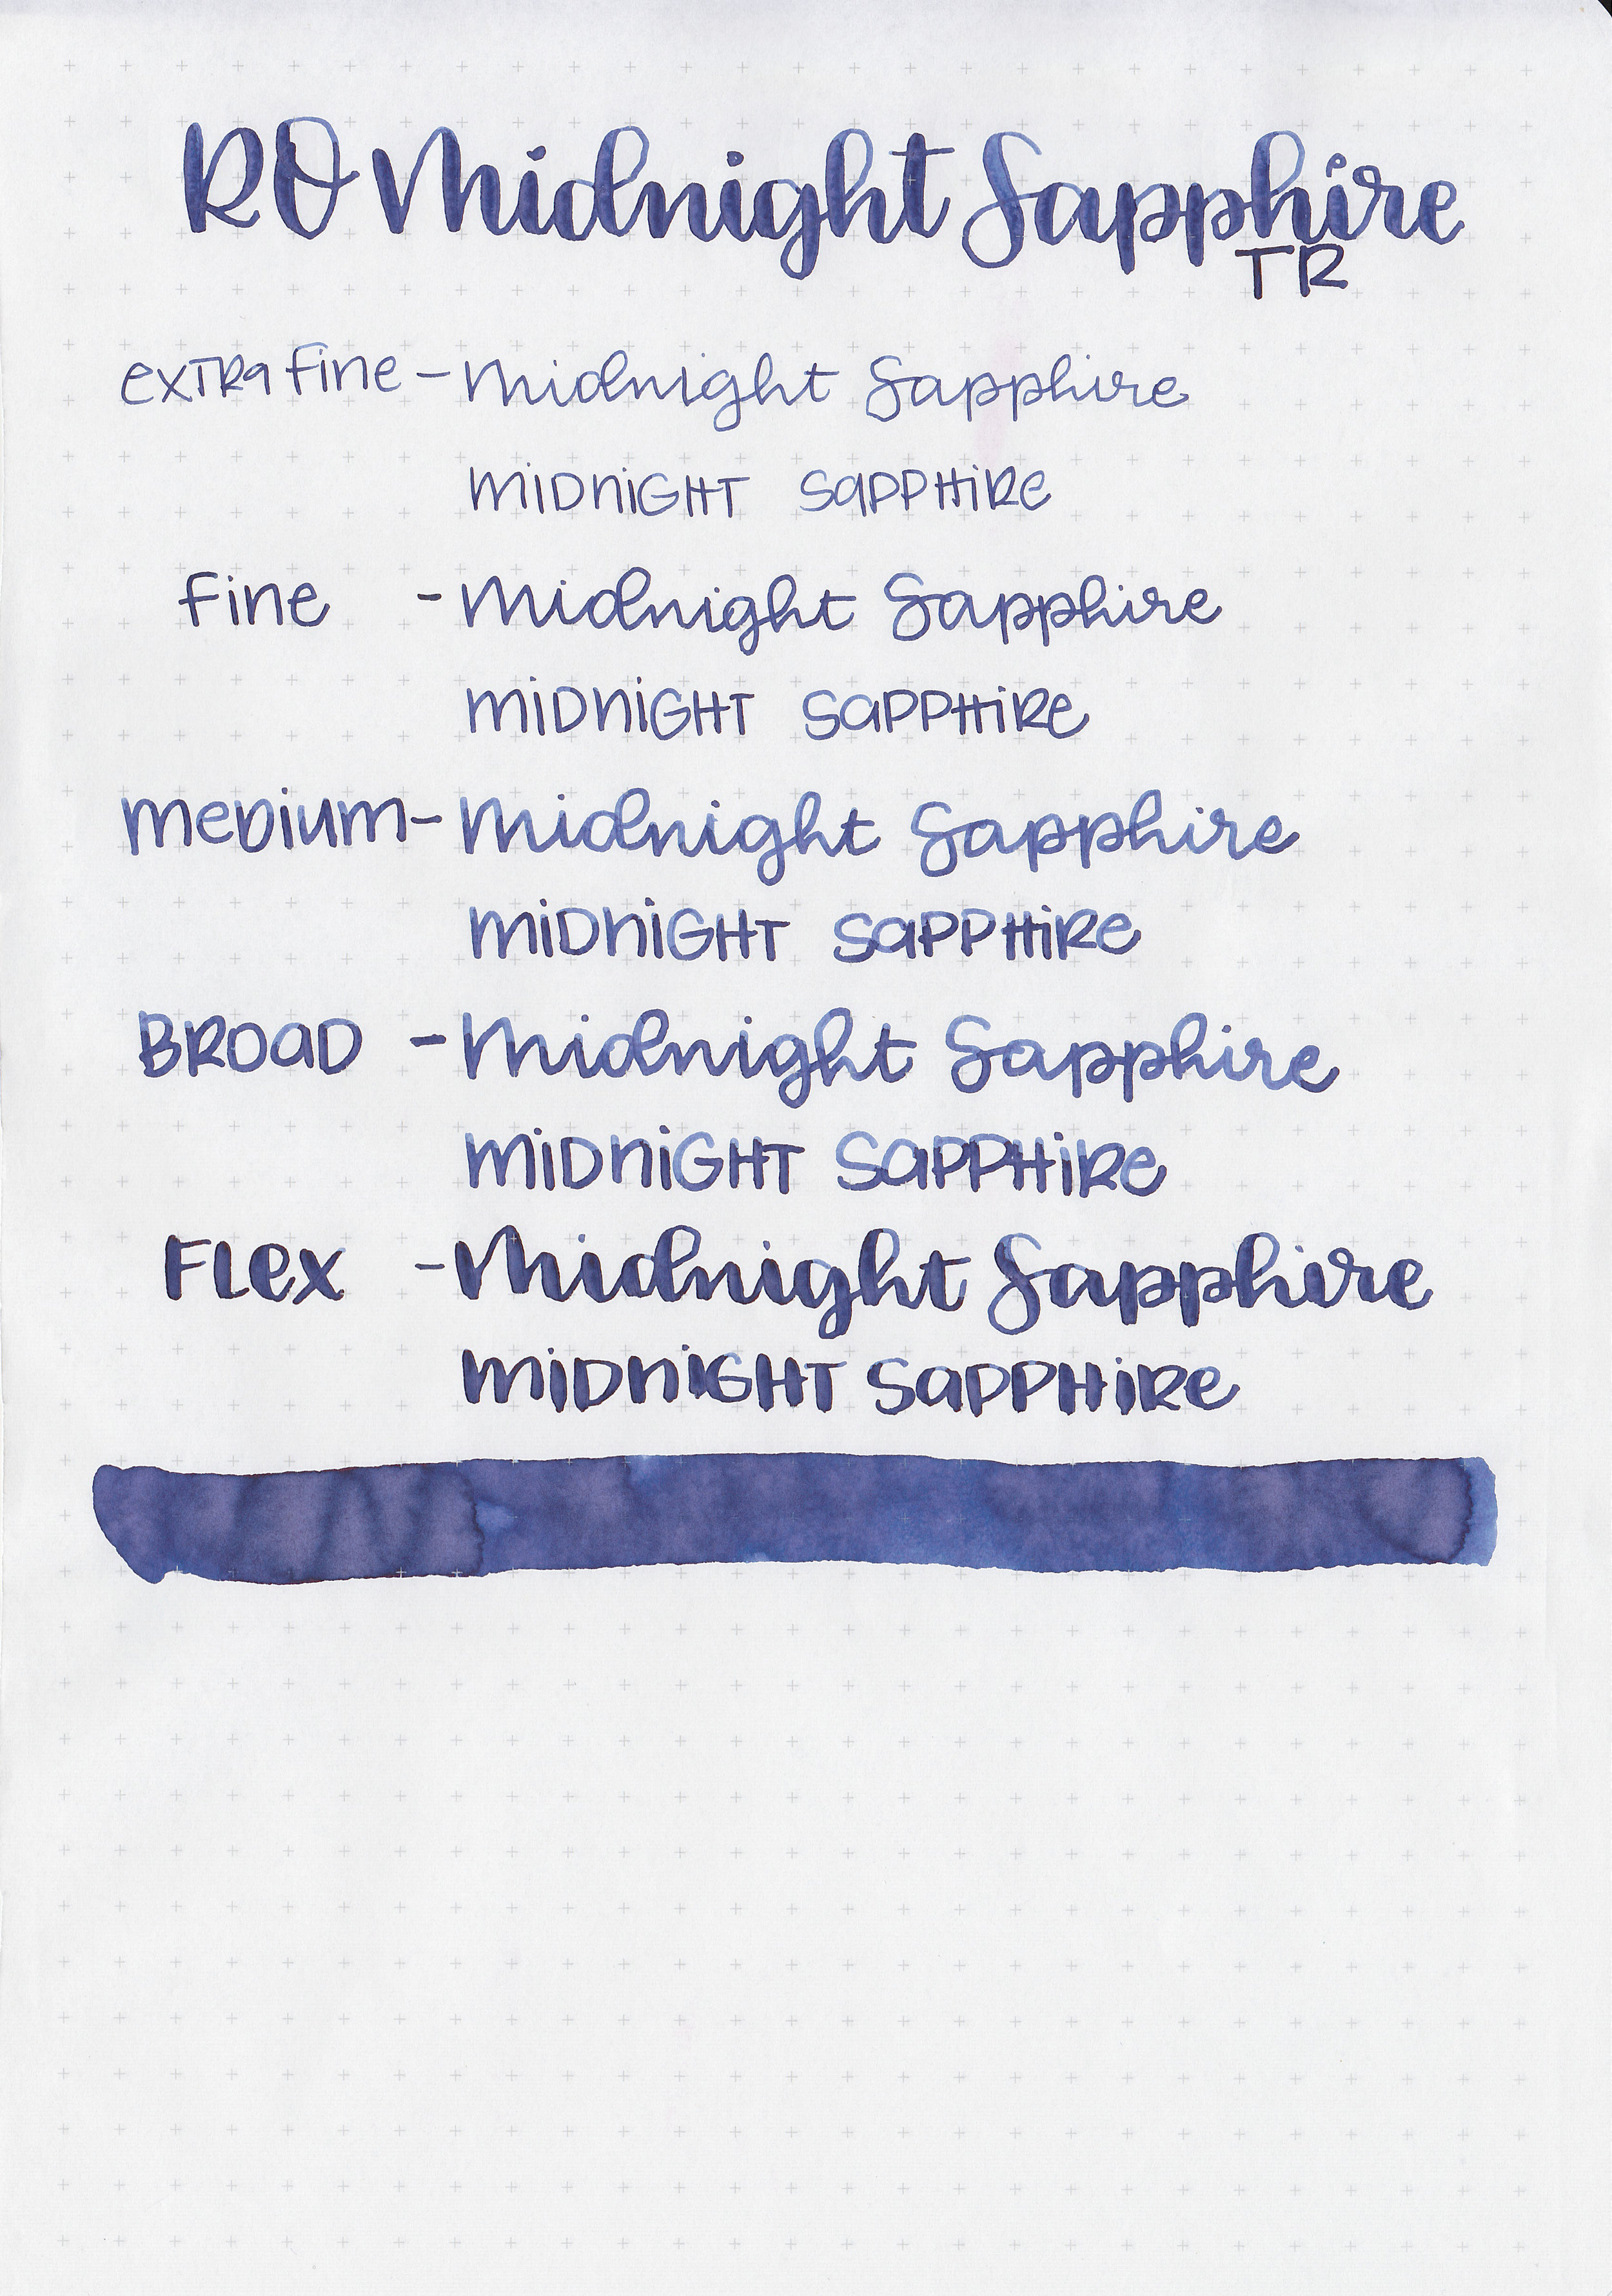 RO Midnight Sapphire
TR
extra fine - Midnight Sapphire
MiDniGHT SaPPHiRe
Fine - Midnight Sapphire
MiDniGHT SaPPHiRe
meDium - Midnight Sapphire
MiDniGHT SaPPHiRe
BROaD - Midnight Sapphire
MiDniGHT SaPPHiRe
FLex - Midnight Sapphire
MiDniGHT SaPPHiRe